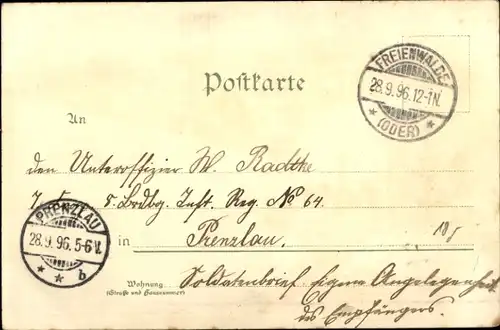 Postkarte
FREIENWALDE
28.9.96.12-1N.
* (ODER) *
An
den Unteroffizier W. Radtke
Brdbg. Inft. Reg. No 64.
PRENZLAU
28.9.96.5-6V.
* * b
in Prenzlau.
Wohnung
(Straße und Hausnummer)
Soldatenbrief Eigene Angelegenheit
des Empfängers.